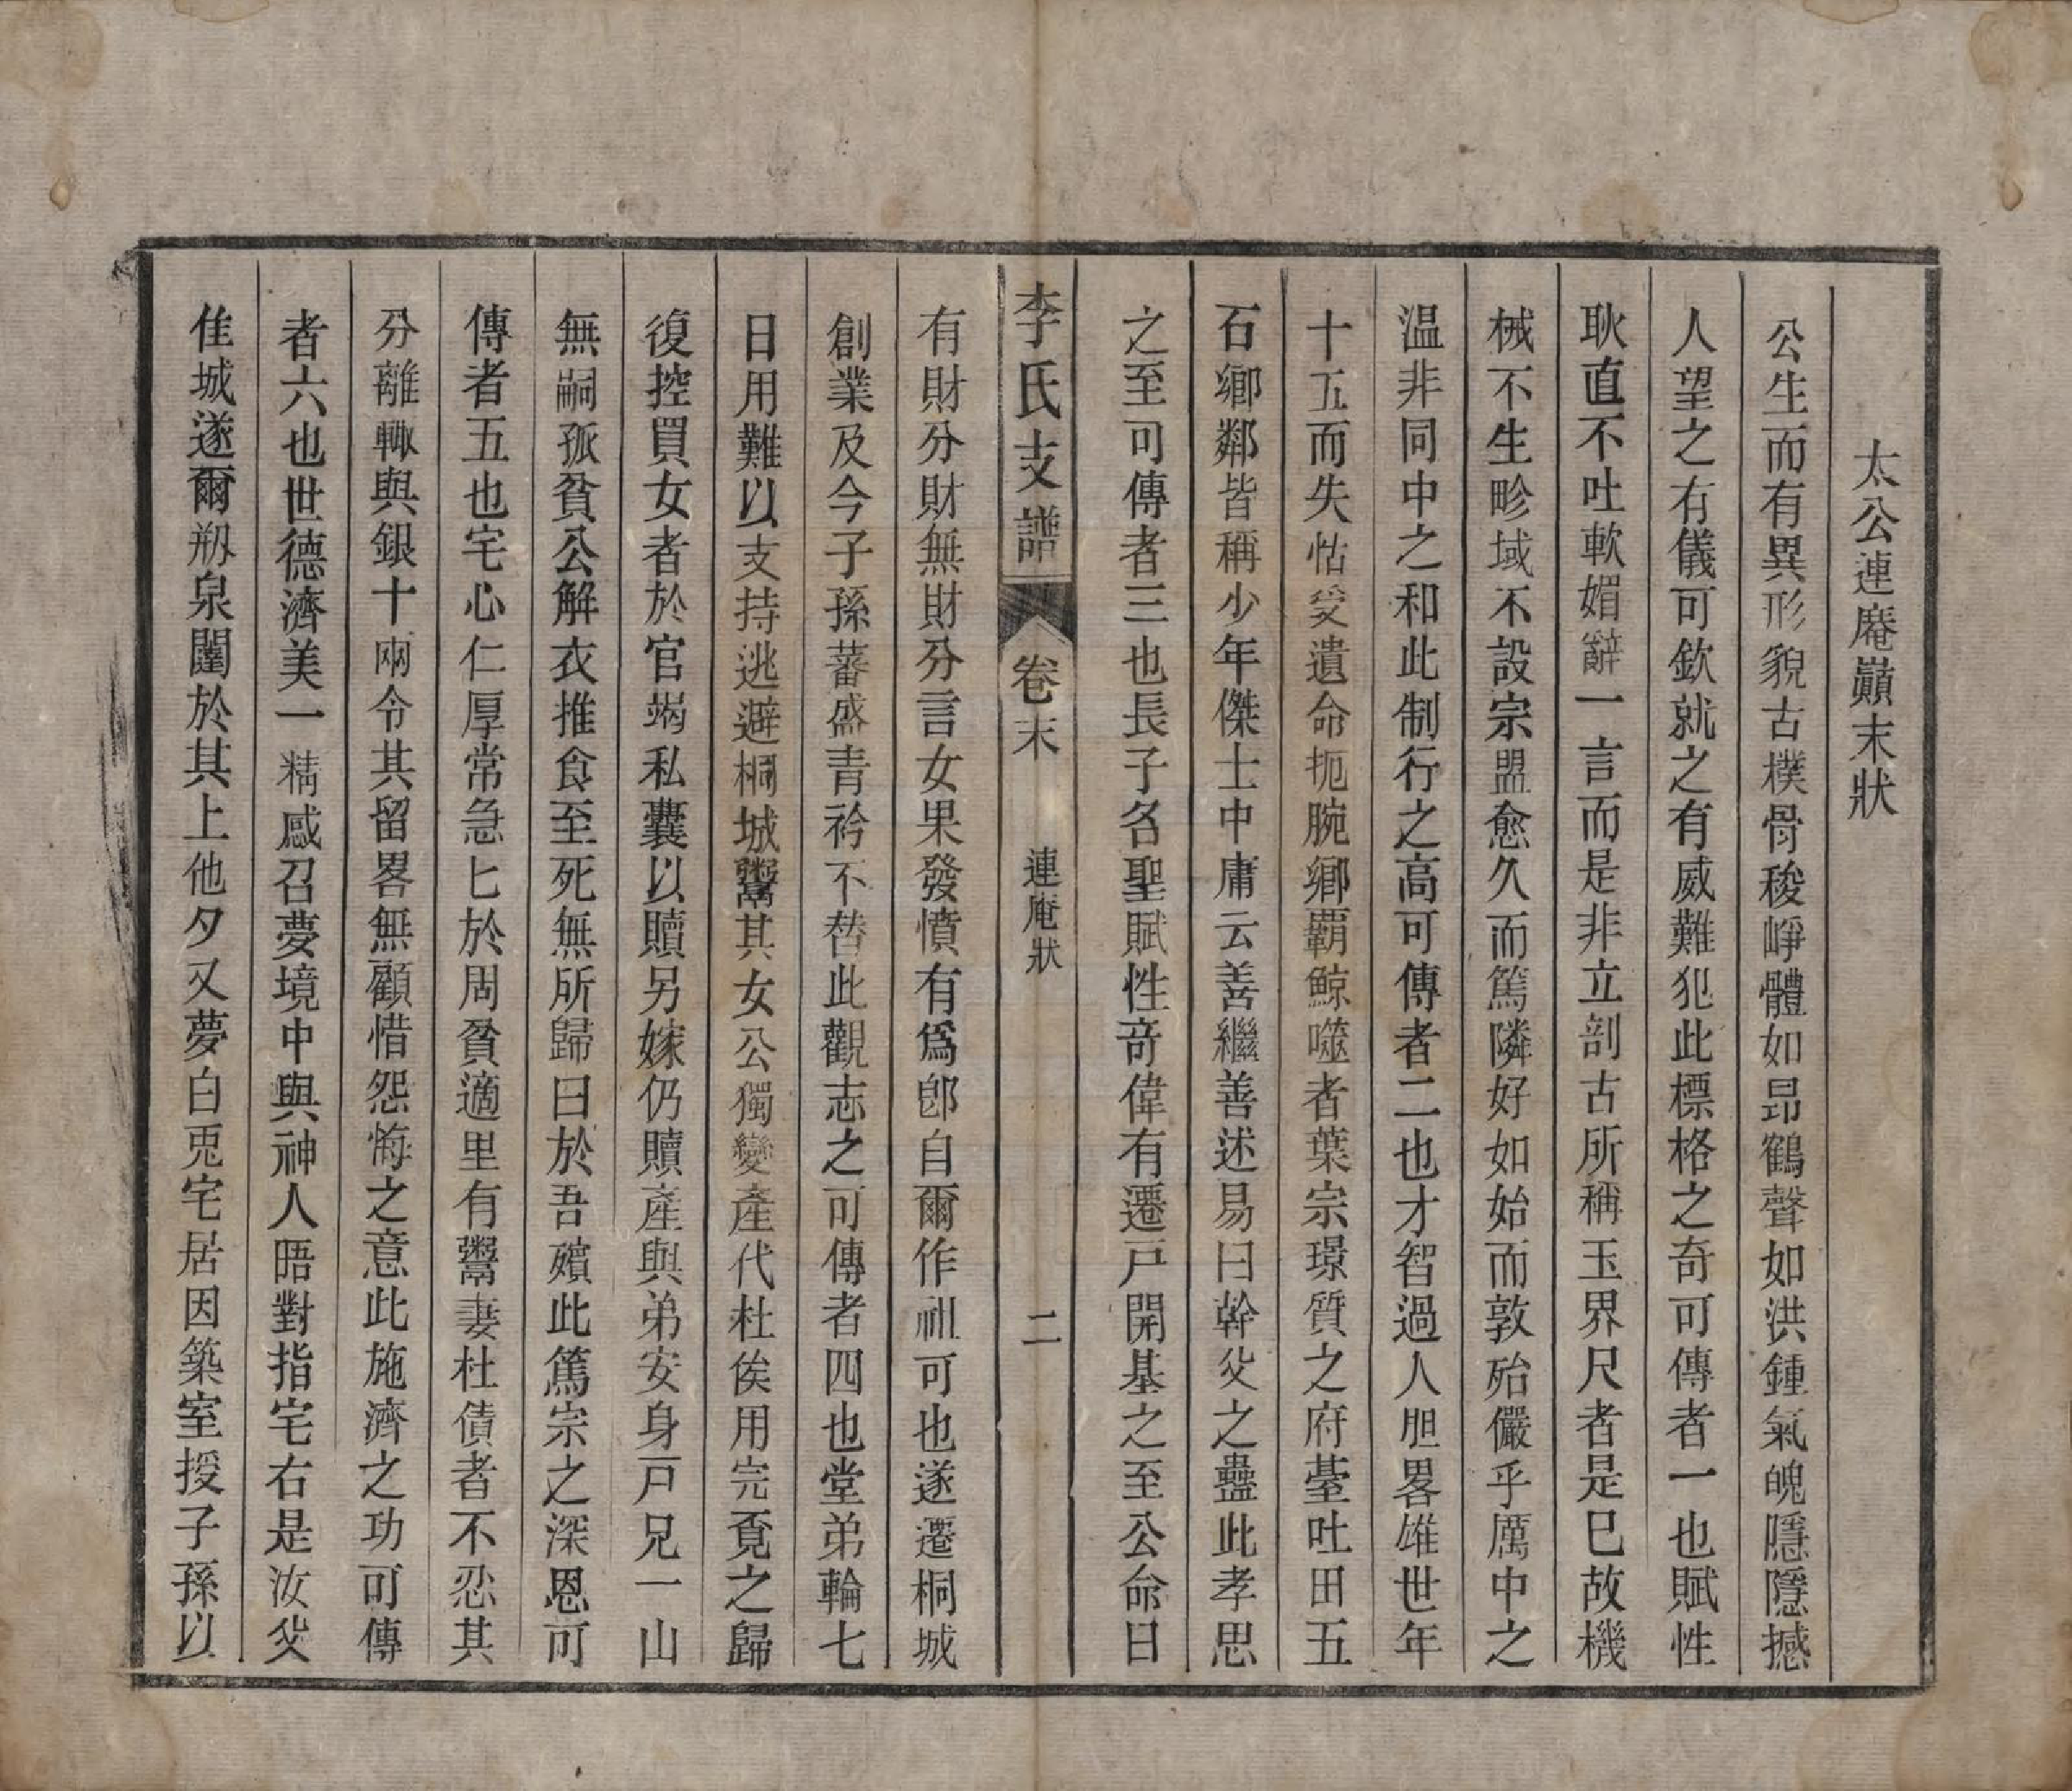 太公連庵巔末狀
公生而有異形貌古樸骨稜崢體如昂鶴聲如洪鍾氣魄隱隱撼
人望之有儀可欽就之有威難犯此標格之奇可傳者一也賦性
耿直不吐軟媚辭一言而是非立剖古所稱玉界尺者是巳故機
械不生畛域不設宗盟愈久而篤隣好如始而敦殆儼乎厲中之
温非同中之和此制行之高可傳者二也才智過人胆畧雄世年
十五而失怙受遺命扼腕鄉覇鯨噬者葉宗璟質之府臺吐田五
石鄉鄰皆稱少年傑士中庸云善繼善述易曰幹父之蠱此孝思
之至可傳者三也長子各聖賦性奇偉有遷戸開基之至公命曰
李氏支譜 卷末 連庵狀 二
有財分財無財分言女果發憤有爲卽自爾作祖可也遂遷桐城
創業及今子孫蕃盛青衿不替此觀志之可傳者四也堂弟輪七
日用難以支持逃避桐城鬻其女公獨變產代杜俟用完覔之歸
復控買女者於官竭私囊以贖另嫁仍贖產與弟安身戸兄一山
無嗣孤貧公解衣推食至死無所歸曰於吾殯此篤宗之深恩可
傳者五也宅心仁厚常急匕於周貧適里有鬻妻杜債者不忍其
分離輙與銀十兩令其留畧無顧惜怨悔之意此施濟之功可傳
者六也世德濟美一精感召夢境中與神人晤對指宅右是汝父
佳城遂爾剏泉闥於其上他夕又夢白兎宅居因築室授子孫以